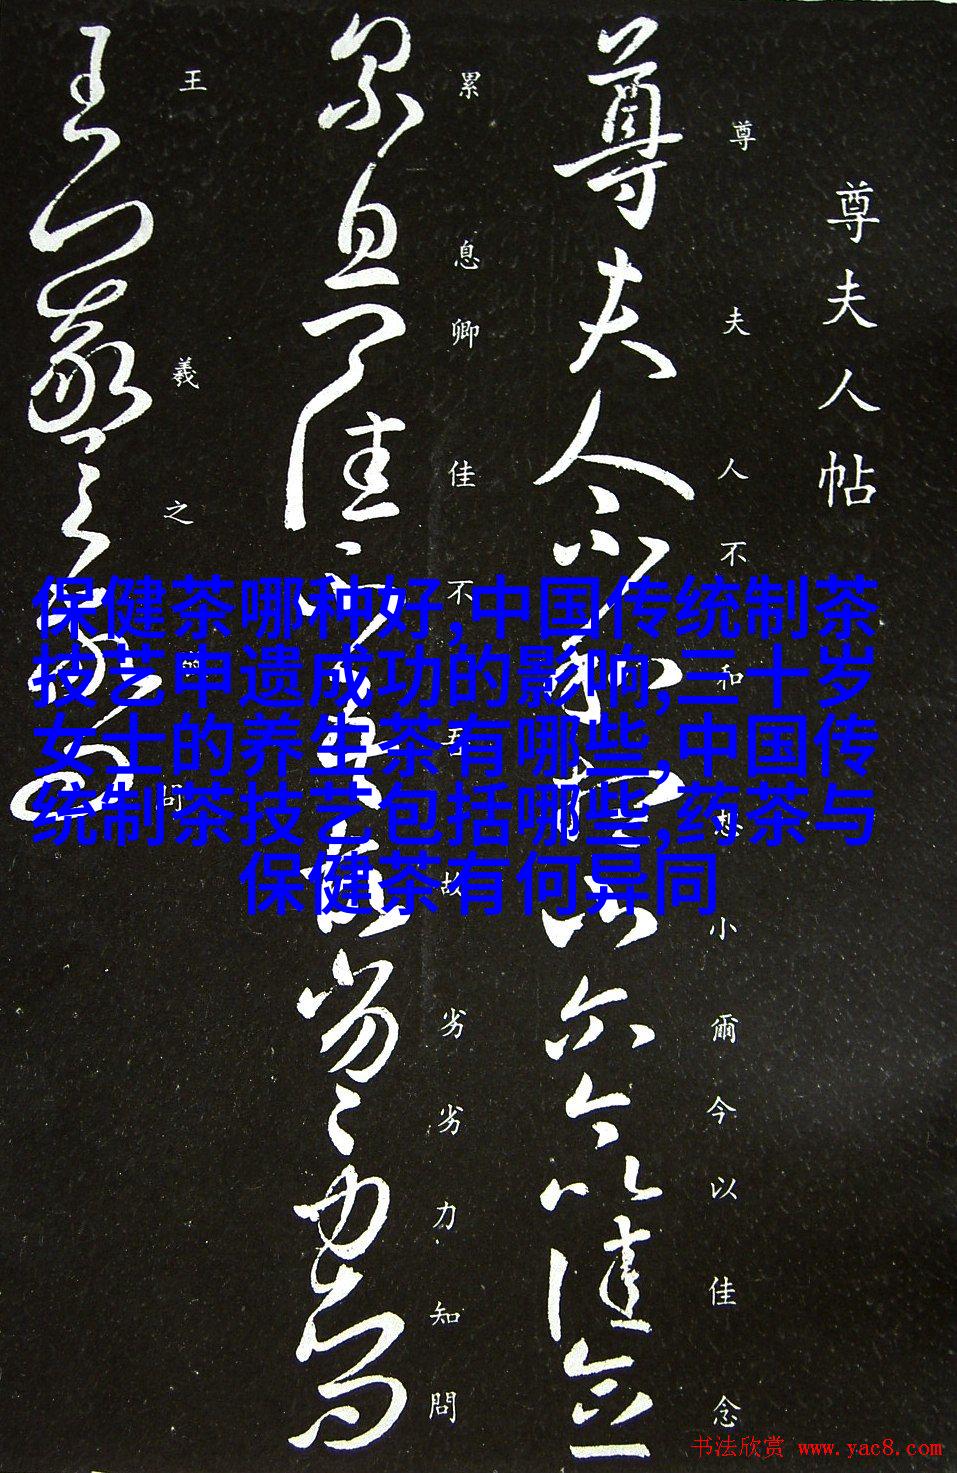 尊夫人帖
尊夫人不和想小爾今以佳念
累息卿佳不吾故劣劣力知問
王羲之
問
保健茶哪种好,中国传统制茶
技艺申遗成功的影响,三十岁
女士的养生茶有哪些,中国传
统制茶技艺包括哪些,药茶与
保健茶有何异同
书法欣赏 www.yac8.com